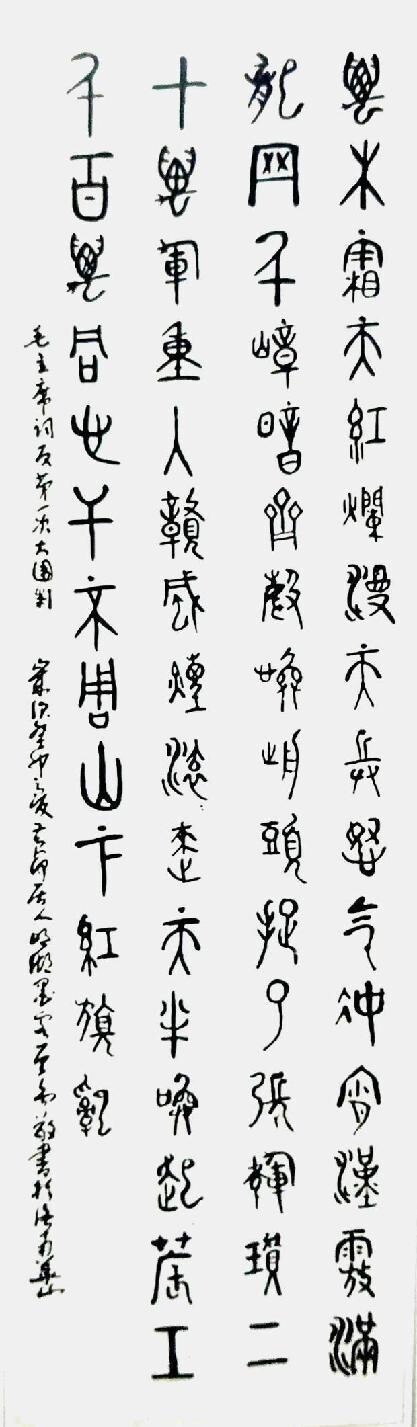 萬木霜天紅爛漫天兵怒气沖霄漢霧滿
龍岡千嶂暗齊聲喚前頭捉了張輝瓚二
十萬軍重入贛風煙滾〻來天半喚起農工
千百萬同心干不周山下紅旗亂
毛主席詞反第一次大圍剿 歲次之夏明湖墨客敬書於濟南華山